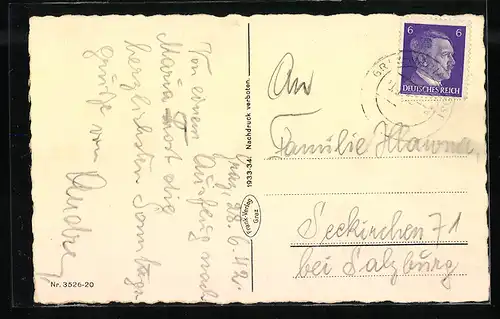 Graz, 28.6.42.
Von einem Ausflug nach
Maria Trost die
herzlichsten Sonntags
grüße von
Andre
Nr. 3526-20
1933-34. Nachdruck verboten.
Frank-Verlag
Graz
6 6
DEUTSCHES REICH
An
Familie
Seekirchen 71
bei Salzburg